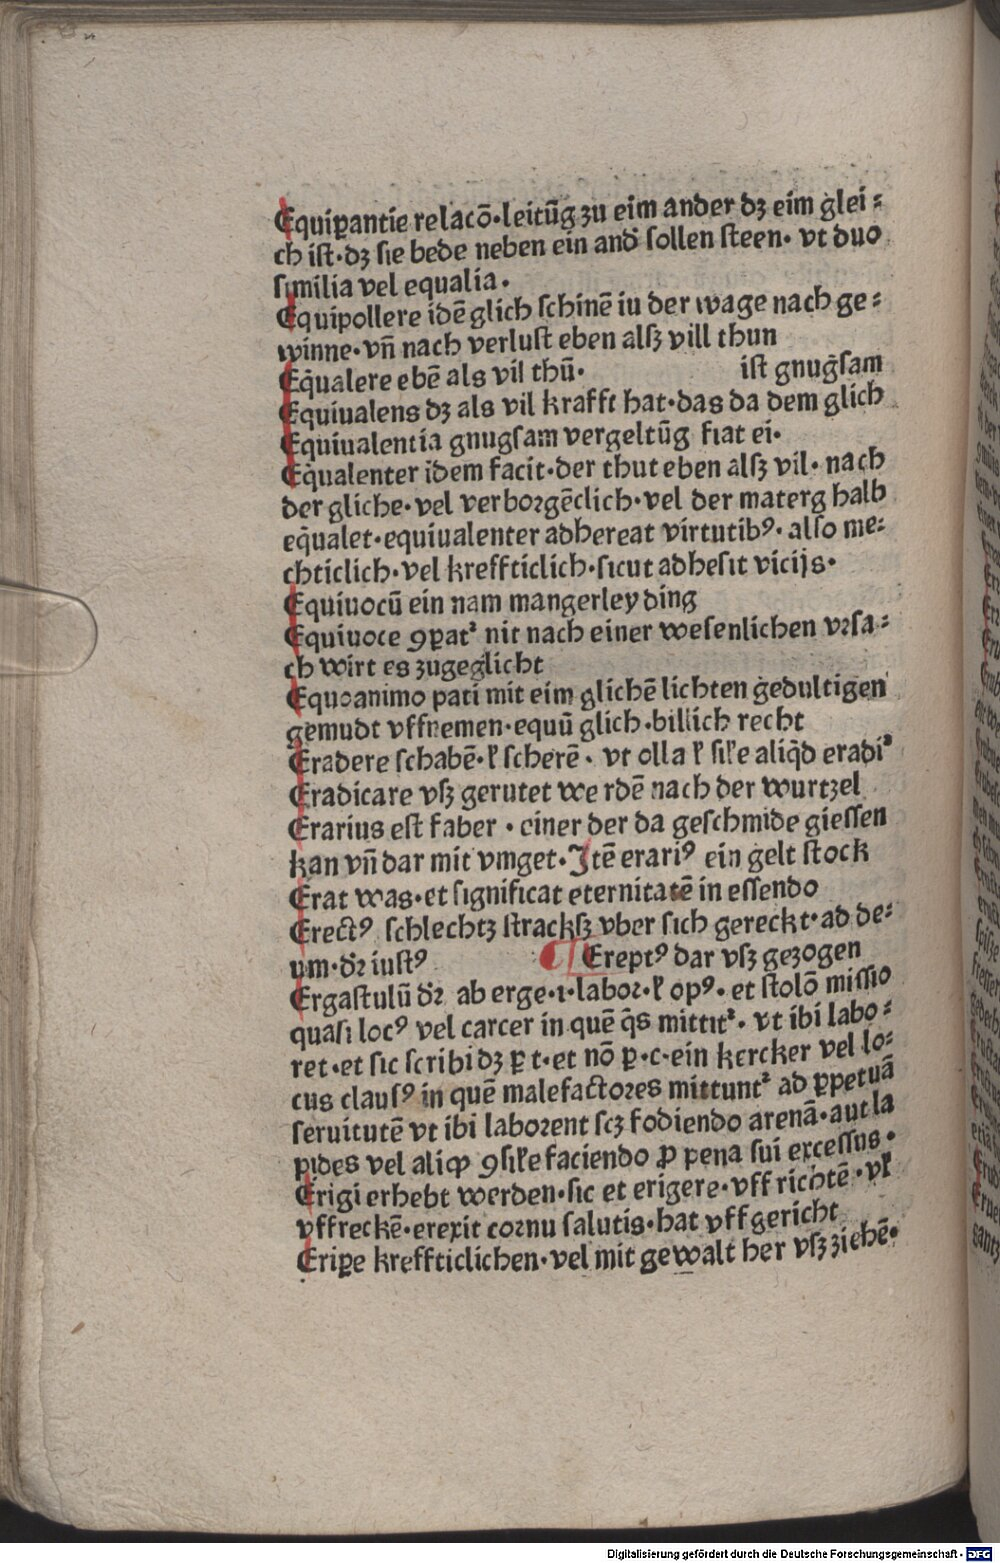 Equiꝑantie relacō·leitūg zu eim ander dz eim glei⸗
ch ist·dz sie bede neben ein and̕ sollen steen· vt duo
similia vel equalia·
Equipollere idē glich schinē in der wage nach ge⸗
winne·vn̄ nach verlust eben alsz vill thun
Eq̇ualere ebē als vil thū· ist gnuġsam
Equiualens dz als vil krafft hat·das da dem glich
Equiualentia gnugsam vergeltūg fiat ei·
Eq̇ualenter idem facit·der thut eben alsz vil· nach
der gliche·vel verborgēclich·vel der materg halb
eq̇ualet·equiualenter adhereat virtutibꝰ· also me⸗
chticlich·vel kreffticlich·sicut adhesit vicijs·
Equiuocū ein nam mangerley ding
Equiuoce ꝯꝑat᷑ nit nach einer wesenlichen vꝛsa⸗
ch wirt es zugeglicht
Equoanimo pati mit eim glichē lichten gedultigen
gemudt vffnemen·equū glich·billich recht
Eradere schabē·ł scherē· vt olla ł sil̕e aliq̇d eradi᷑
Eradicare vsz gerutet werdē nach der wurtzel
Erarius est faber·einer der da geschmide giessen
kan vn̄ dar mit vmget·Itē erariꝰ ein gelt stock
Erat was·et significat eternitatē in essendo
Erectꝰ schlechtz stracksz vber sich gereckt·ad de⸗
um·dꝛ̄ iustꝰ ¶ Ereptꝰ dar vsz gezogen
Ergastulū dꝛ̄ ab erge·i·labor·ł opꝰ·et stolō missio
quasi locꝰ vel carcer in quē q̇s mittit᷑· vt ibi labo⸗
ret·et sic scribi dz ꝑ t·et nō ꝑ·c·ein kercker vel lo⸗
cus clausꝰ in quē malefactores mittunt᷑ ad ꝑpetuā
seruitutē vt ibi laborent scz fodiendo arenā·aut la
pides vel aliqꝫ ꝯsil̕e faciendo ꝓ pena sui excessus·
Erigi erhebt werden·sic et erigere·vff richtē·vł
vffreckē·erexit cornu salutis·hat vff gericht
Eriꝑe kreffticlichen·vel mit gewalt her vsz ziehē·
Digitalisierung gefördert durch die Deutsche Forschungsgemeinschaft - DFG